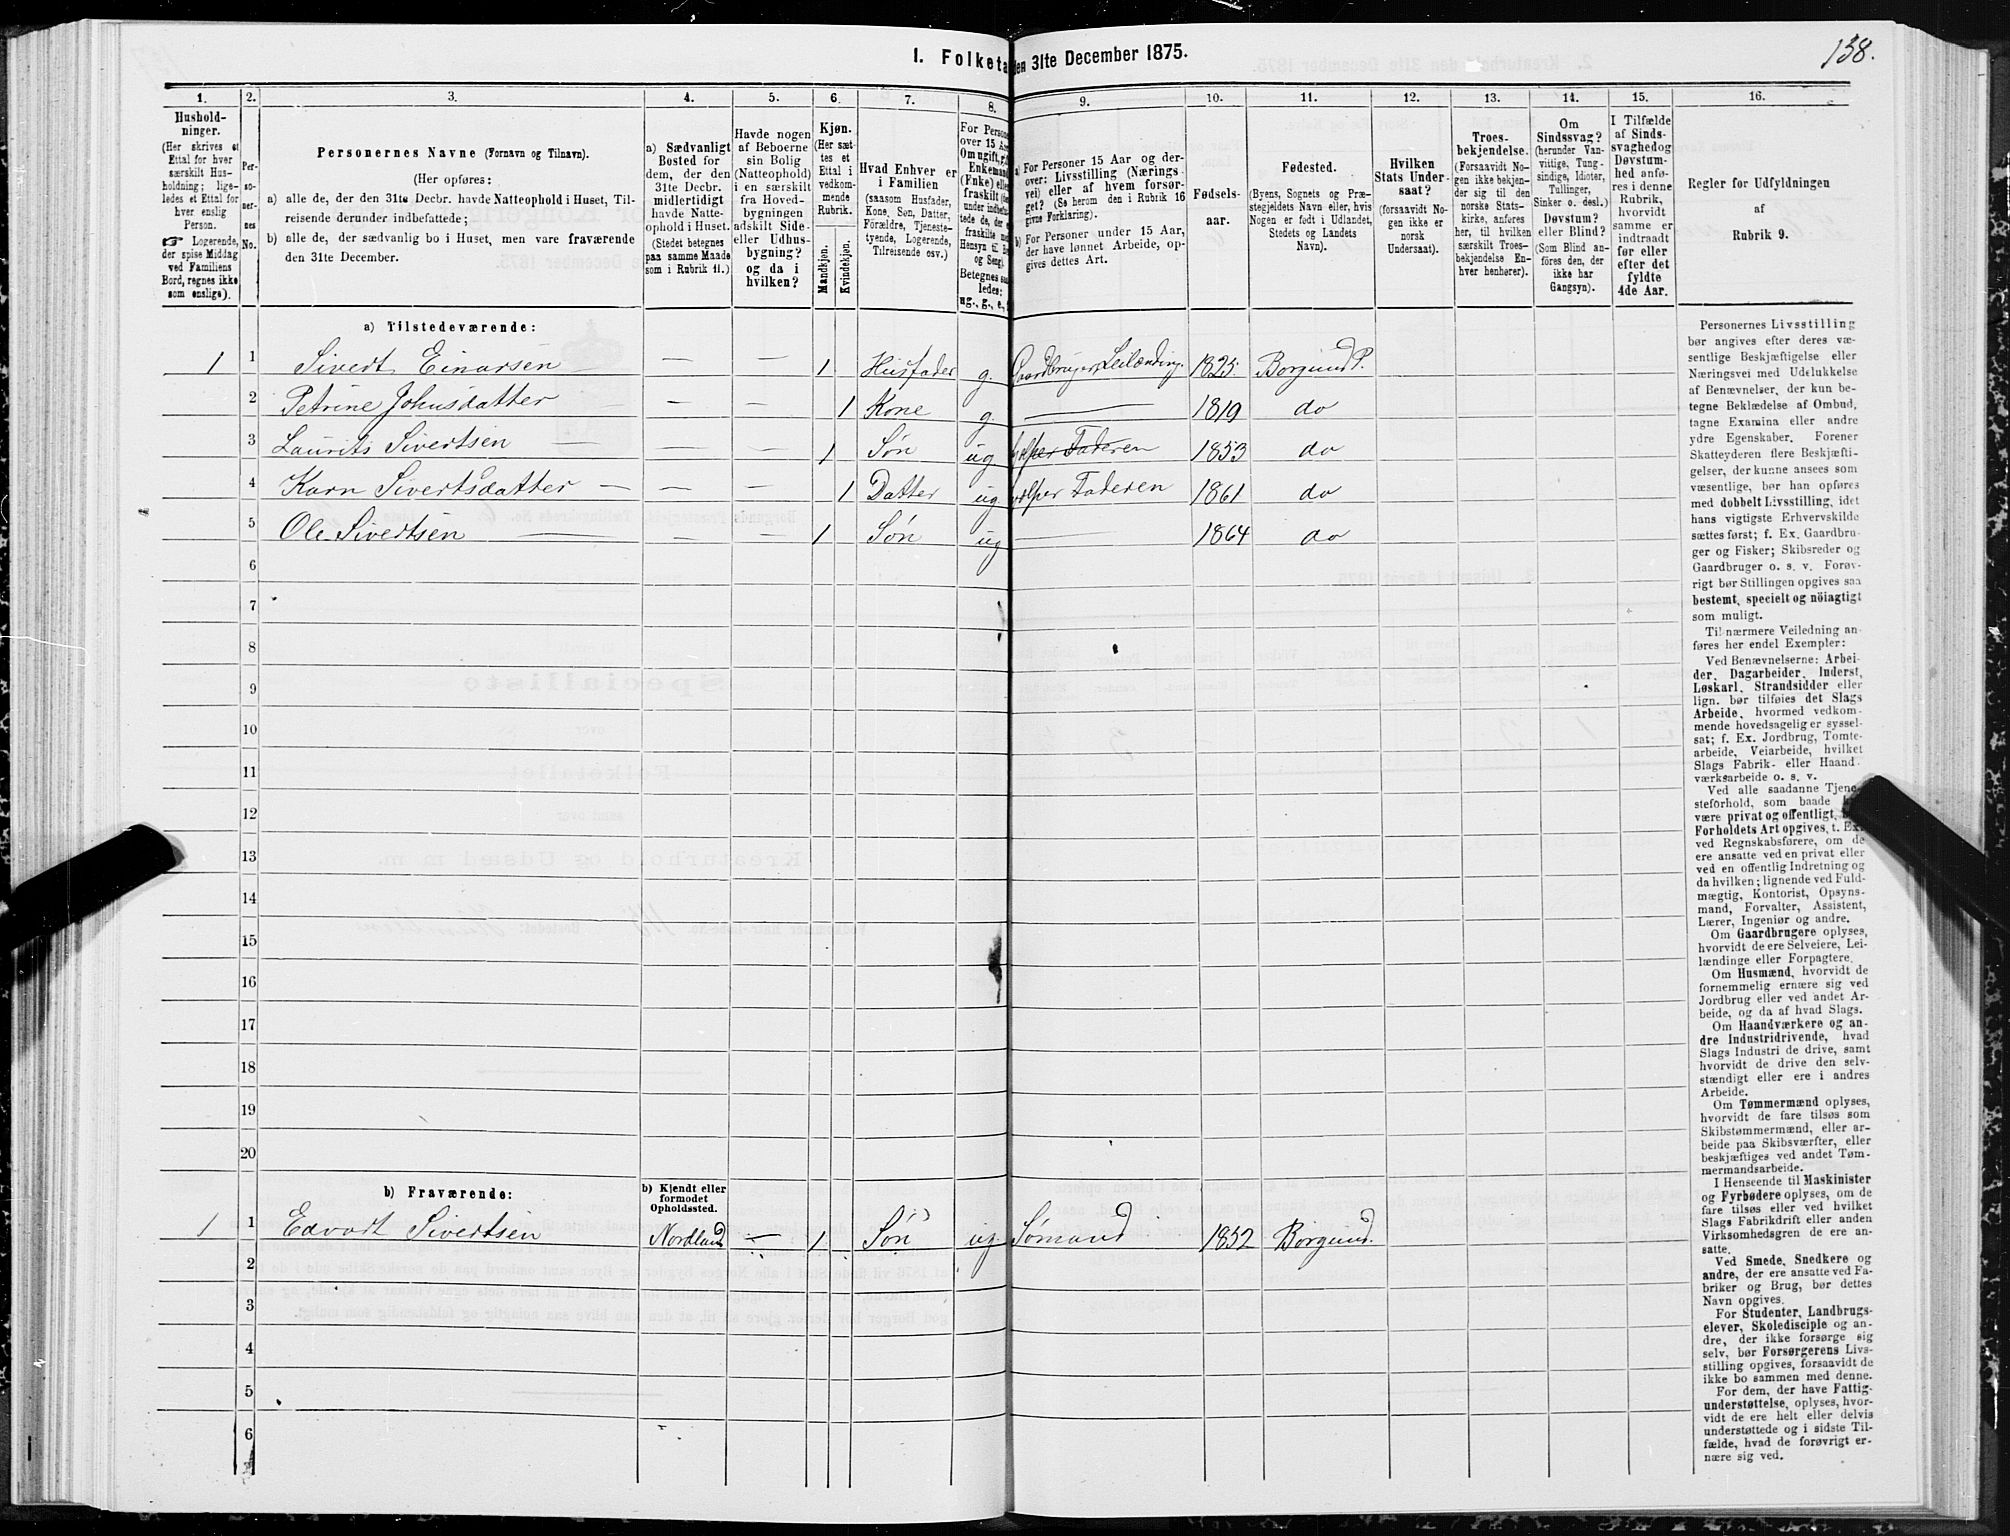 138.
1. Folketa
den 31te December 1875.
1.
2.
3.
4.
5.
6.
7.
8.
9.
10.
11.
12.
13.
14.
15.
16.
Hushold-
ninger.
(Her skrives et
Ettal for hver
særskilt Hus-
holdning; lige-
ledes et Ettal for
hver enslig
Person.
☞ Logerende,
der spise Middag
ved Familiens
Bord, regnes ikke
som enslige).
Per-
so-
ner-
nes
No.
Personernes Navne (Fornavn og Tilnavn).
(Her opføres:
a) alle de, der den 31te Decbr. havde Natteophold i Huset, Til-
reisende derunder indbefattede;
b) alle de, der sædvanlig bo i Huset, men vare fraværende
den 31te December.
a) Sædvanligt
Bosted for
dem, der den
31te Decbr.
midlertidigt
havde Natte-
ophold i Huset.
(Stedet betegnes
paa samme Maade
som i Rubrik 11.)
Havde nogen
af Beboerne
sin Bolig
(Natteophold)
i en særskilt
fra Hoved-
bygningen
adskilt Side-
eller Udhus-
bygning?
og da i
hvilken?
Kjøn.
(Her sæt-
tes et
Ettal i
vedkom-
mende
Rubrik.
Mandkjøn.
Kvindekjøn.
Hvad Enhver er
i Familien
(saasom Husfader,
Kone, Søn, Datter,
Forældre, Tjeneste-
tyende, Logerende,
Tilreisende osv.)
For Person
over 15 Aar
Om ugift, g
Enkemand
(Enke) elle
fraskilt
under indbe
tede de, der
fraskilte me
Hensyn til B
og Seng).
Betegnes saa
ledes:
ug., g., e.,
a) For Personer 15 Aar og der-
over: Livsstilling (Nærings-
vei) eller af hvem forsør-
get? (Se herom den i Rubrik 16
givne Forklaring).
b) For Personer under 15 Aar,
der have lønnet Arbeide, op-
gives dettes Art.
Fødsels-
aar.
Fødested.
(Byens, Sognets og Præ-
stegjeldets Navn eller, hvis
Nogen er født i Udlandet,
Stedets og Landets
Navn).
Hvilken
Stats Under-
saat?
(forsaavidt No-
gen ikke er
norsk
Undersaat).
Troes-
bekjendelse.
(Forsaavidt No-
gen ikke bekjen-
der sig til den
norske Stats-
kirke, anføres
her, til hvilken
særskilt Troes-
bekjendelse En-
hver henhører).
Om
Sindssvag?
(herunder Van-
vittige, Tung-
sindige, Idioter,
Tullinger,
Sinker o. desl.)
Døvstum?
eller Blind?
(Som Blind an-
føres den, der
ikke har
Gangsyn).
I Tilfælde
af Sinds-
svaghed og
Døvstum-
hed anfø-
res i denne
Rubrik,
hvorvidt
samme er
indtraadt
før eller
efter det
fyldte
4de Aar.
Regler for Udfyldningen
af
Rubrik 9.
a) Tilstedeværende:
1 1 Sivert Einarsen — — 1 Husfader g. Gaardbruger, Leilænding. 1825. Borgund P.
2 Petrine Johnsdatter — — 1 Kone g. — 1819 do
3 Laurits Sivertsen — — 1 Søn ug hjælper Faderen 1853 do
4 Karn Sivertsdatter — — 1 Datter ug hjælper Faderen 1861 do
5 Ole Sivertsen — — 1 Søn ug — 1864 do
6
7
8
9
10
11
12
13
14
15
16
17
18
19
20
b) Fraværende:
b) Kjendt eller
formodet
Opholdssted.
1 1 Edvart Sivertsen Nordland — 1 Søn ug. Sømand 1852 Borgund.
2
3
4
5
6
Personernes Livsstilling
bør angives efter deres væ-
sentlige Beskjæftigelse eller
Næringsvei med Udelukkelse
af Benævnelser, der kun be-
tegne Beklædelse af Ombud,
tagne Examina eller andre
ydre Egenskaber. Forener
Skatteyderen flere Beskjæfti-
gelser, der kunne ansees som
væsentlige, bør han opføres
med dobbelt Livsstilling, idet
hans vigtigste Erhvervskilde
sættes først; f. Ex. Gaardbru-
ger og Fisker; Skibsreder og
Gaardbruger o. s. v. Forøv-
rigt bør Stillingen opgives saa
bestemt, specielt og nöiagtigt
som muligt.
Til nærmere Veiledning an-
føres her endel Exempler:
Ved Benævnelserne: Arbei-
der, Dagarbeider, Inderst,
Løskarl, Strandsidder eller
lign. bør tilføies det Slags
Arbeide, hvormed vedkom-
mende hovedsagelig er syssel-
sat; f. Ex. Jordbrug, Tomte-
arbeide, Veiarbeide, hvilket
Slags Fabrik- eller Haand-
værksarbeide o. s. v.
Ved alle saadanne Tjene-
steforhold, som baade
være privat og offentligt,
Forholdets Art opgives, t. Ex.
ved Regnskabsførere, om de
ere ansatte ved en privat eller
ved en offentlig Indretning og
da hvilken; lignende ved Fuld-
mægtig, Kontorist, Opsyns-
mand, Forvalter, Assistent,
Lærer, Ingeniør og andre.
Om Gaardbrugere oplyses,
hvorvidt de ere Selveiere, Lei-
lændinge eller Forpagtere.
Om Husmænd, hvorvidt de
fornemmelig ernære sig ved
Jordbrug eller ved andet Ar-
beide, og da af hvad Slags.
Om Haandværkere og an-
dre Industridrivende, hvad
Slags Industri de drive, samt
hvorvidt de drive den selv-
stændigt eller ere i andres
Arbeide.
Om Tømmermænd oplyses,
hvorvidt de fare tilsøs som
Skibstømmermænd, eller ar-
beide paa Skibsværfter, eller
beskjæftiges ved andet Tøm-
mermandsarbeide.
I Henseende til Maskinister
og Fyrbødere oplyses, om de
fare tilsøs eller ved hvilket
Slags Fabrikdrift eller anden
Virksomhedsgren de ere an-
satte.
Ved Smede, Snedkere og
andre, der ere ansatte ved Fa-
briker og Brug, bør dettes
Navn opgives.
For Studenter, Landbrugs-
elever, Skoledisciple og an-
dre, der ikke forsørge sig
selv, bør Forsørgerens Livs-
stilling opgives, forsaavidt de
ikke bo sammen med denne.
For dem, der have Fattig-
understøttelse, oplyses, hvor-
vidt de ere helt eller delvis
understøttede og i sidste Til-
fælde, hvad de forøvrigt er-
nære sig ved.